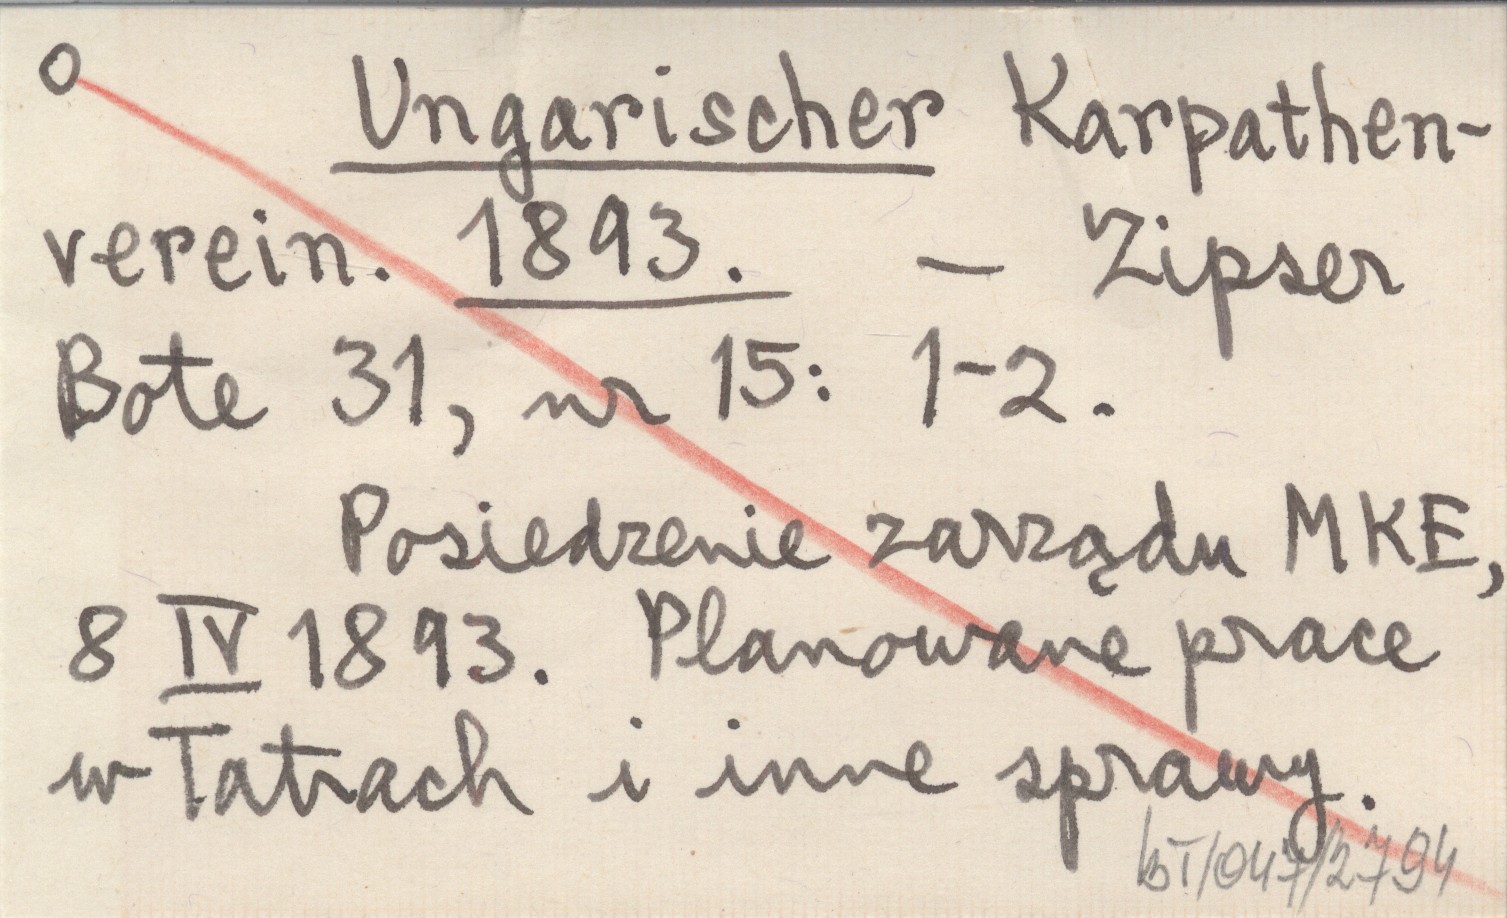 O Ungarischer Karpathen-
verein. 1893. – Zipser
Bote 31, nr 15: 1-2.
Posiedzenie zarządu MKE,
8 IV 1893. Planowane prace
w Tatrach i inne sprawy.
bT/047/2794